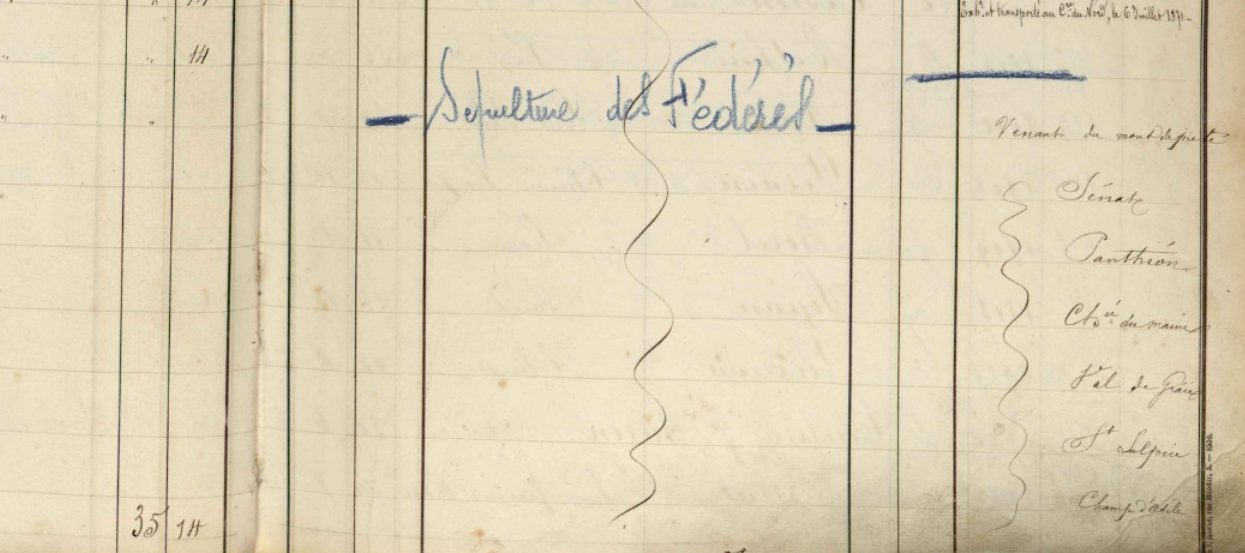 Exhé et transporté au Cre du Nord, le 6 Juillet 1871.
" " 14
Sépulture des Fédérés
" "
Venants du mont de piété
Sénat
Panthéon
Chsée du maine
Val de Grâce
St Sulpice
Champ d'asile
35 14